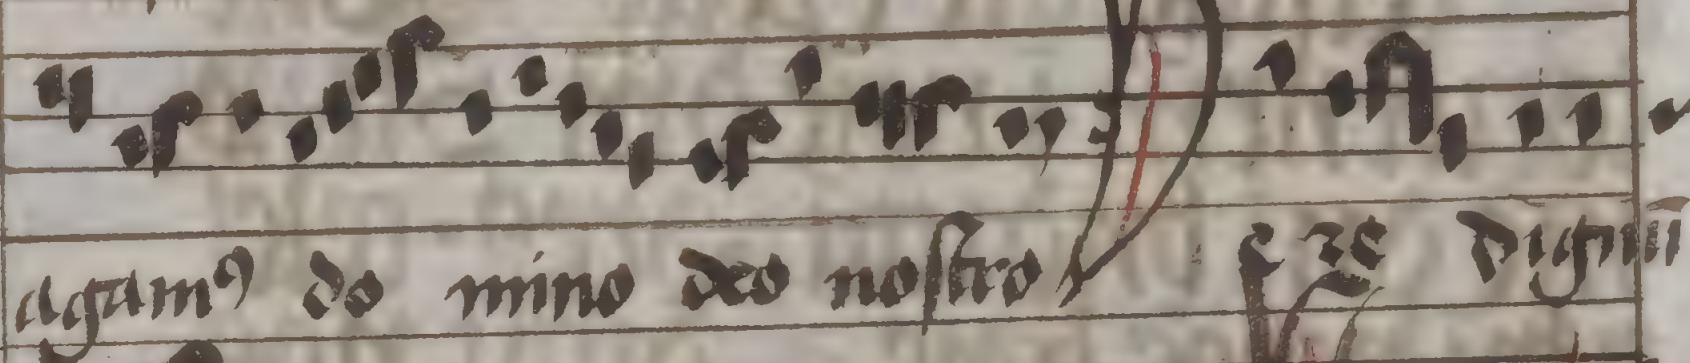 agamꝰ do mino deo nostro Vere dignū